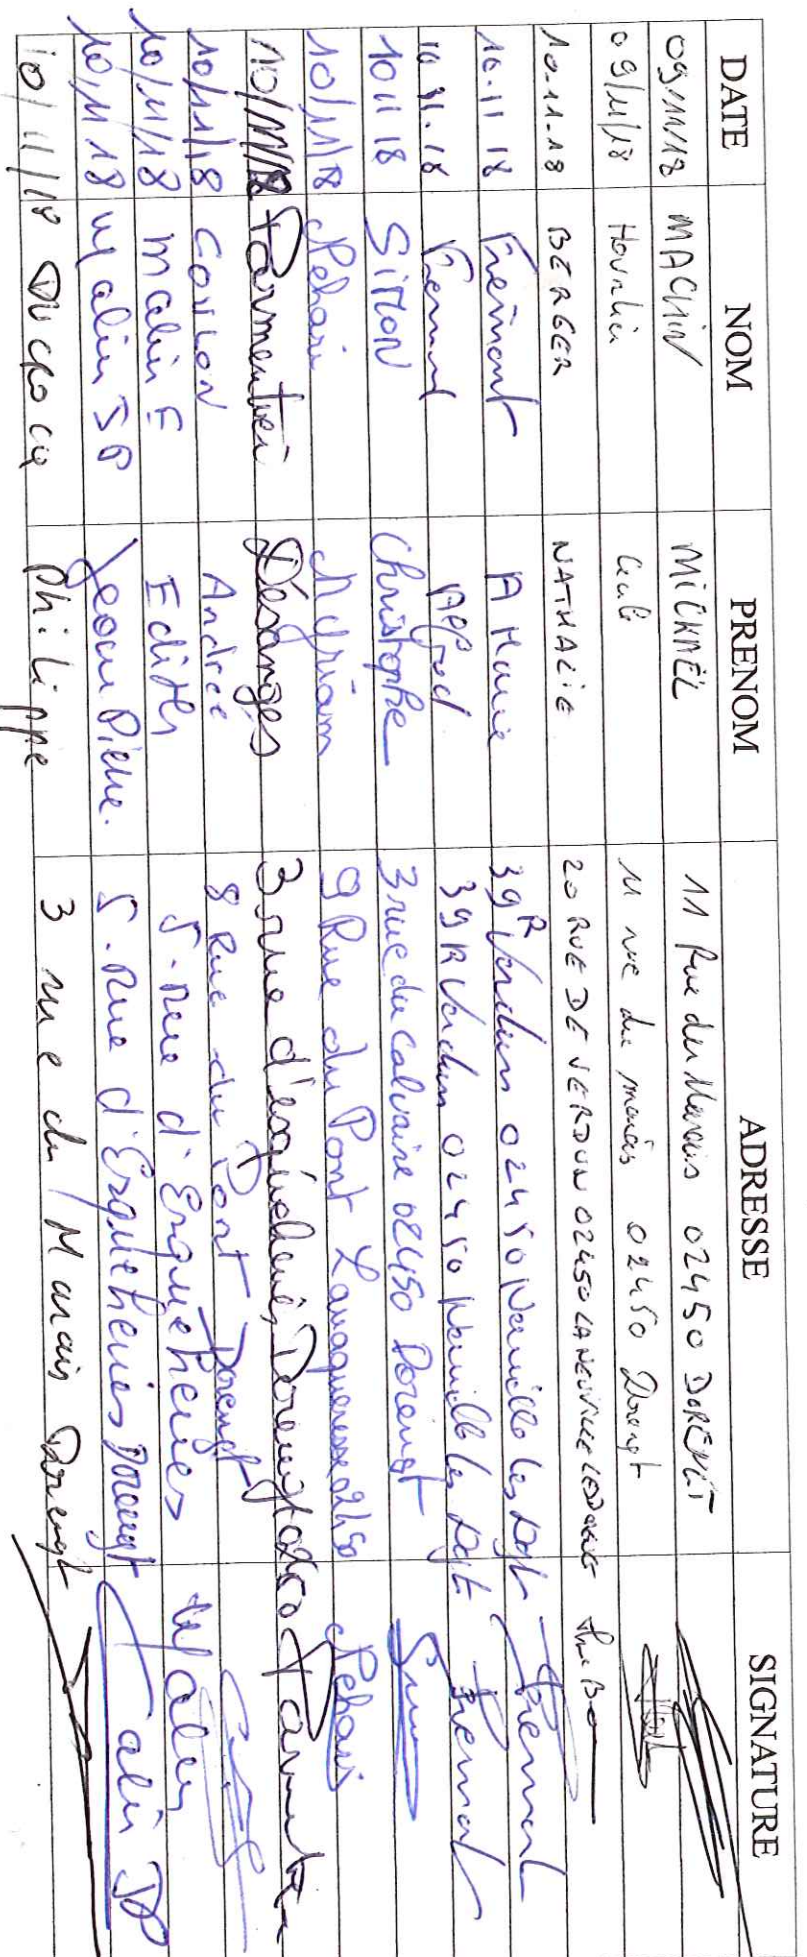 DATE NOM PRENOM ADRESSE SIGNATURE
09/11/18 MACHIN MICKAËL 11 Rue du Marais 02450 DORENGT
09/11/18 11 rue du marais 02450 Dorengt
10.11.18 BERGER NATHALIE 20 RUE DE VERDUN 02450 LA NEUVILLE LES DORENGT
10.11.18 Frémont A Marie 39 R Verdun 02450 Neuville les Dgt Fremont
10.11.18 Fremont Alfred 39 R Verdun 02450 Neuville les Dgt Fremont
10 11 18 SIMON Christophe 3 rue du Calvaire 02450 Dorengt
10/11/18 Pehari Myriam 9 Rue du Pont 02450 Pehari
10/11/18 Parmentier Désanges 3 rue d'esquéheries Dorengt
10/11/18 Andrée 8 Rue du Pont Dorengt
10/11/18 Malin E Edith 5. Rue d'Esqueheries Malin
10/11/18 Malin JP Jean Pierre. 5. Rue d'Esqueheries Dorengt Malin JP
10/11/18 DUCROCQ Philippe 3 rue du Marais Dorengt